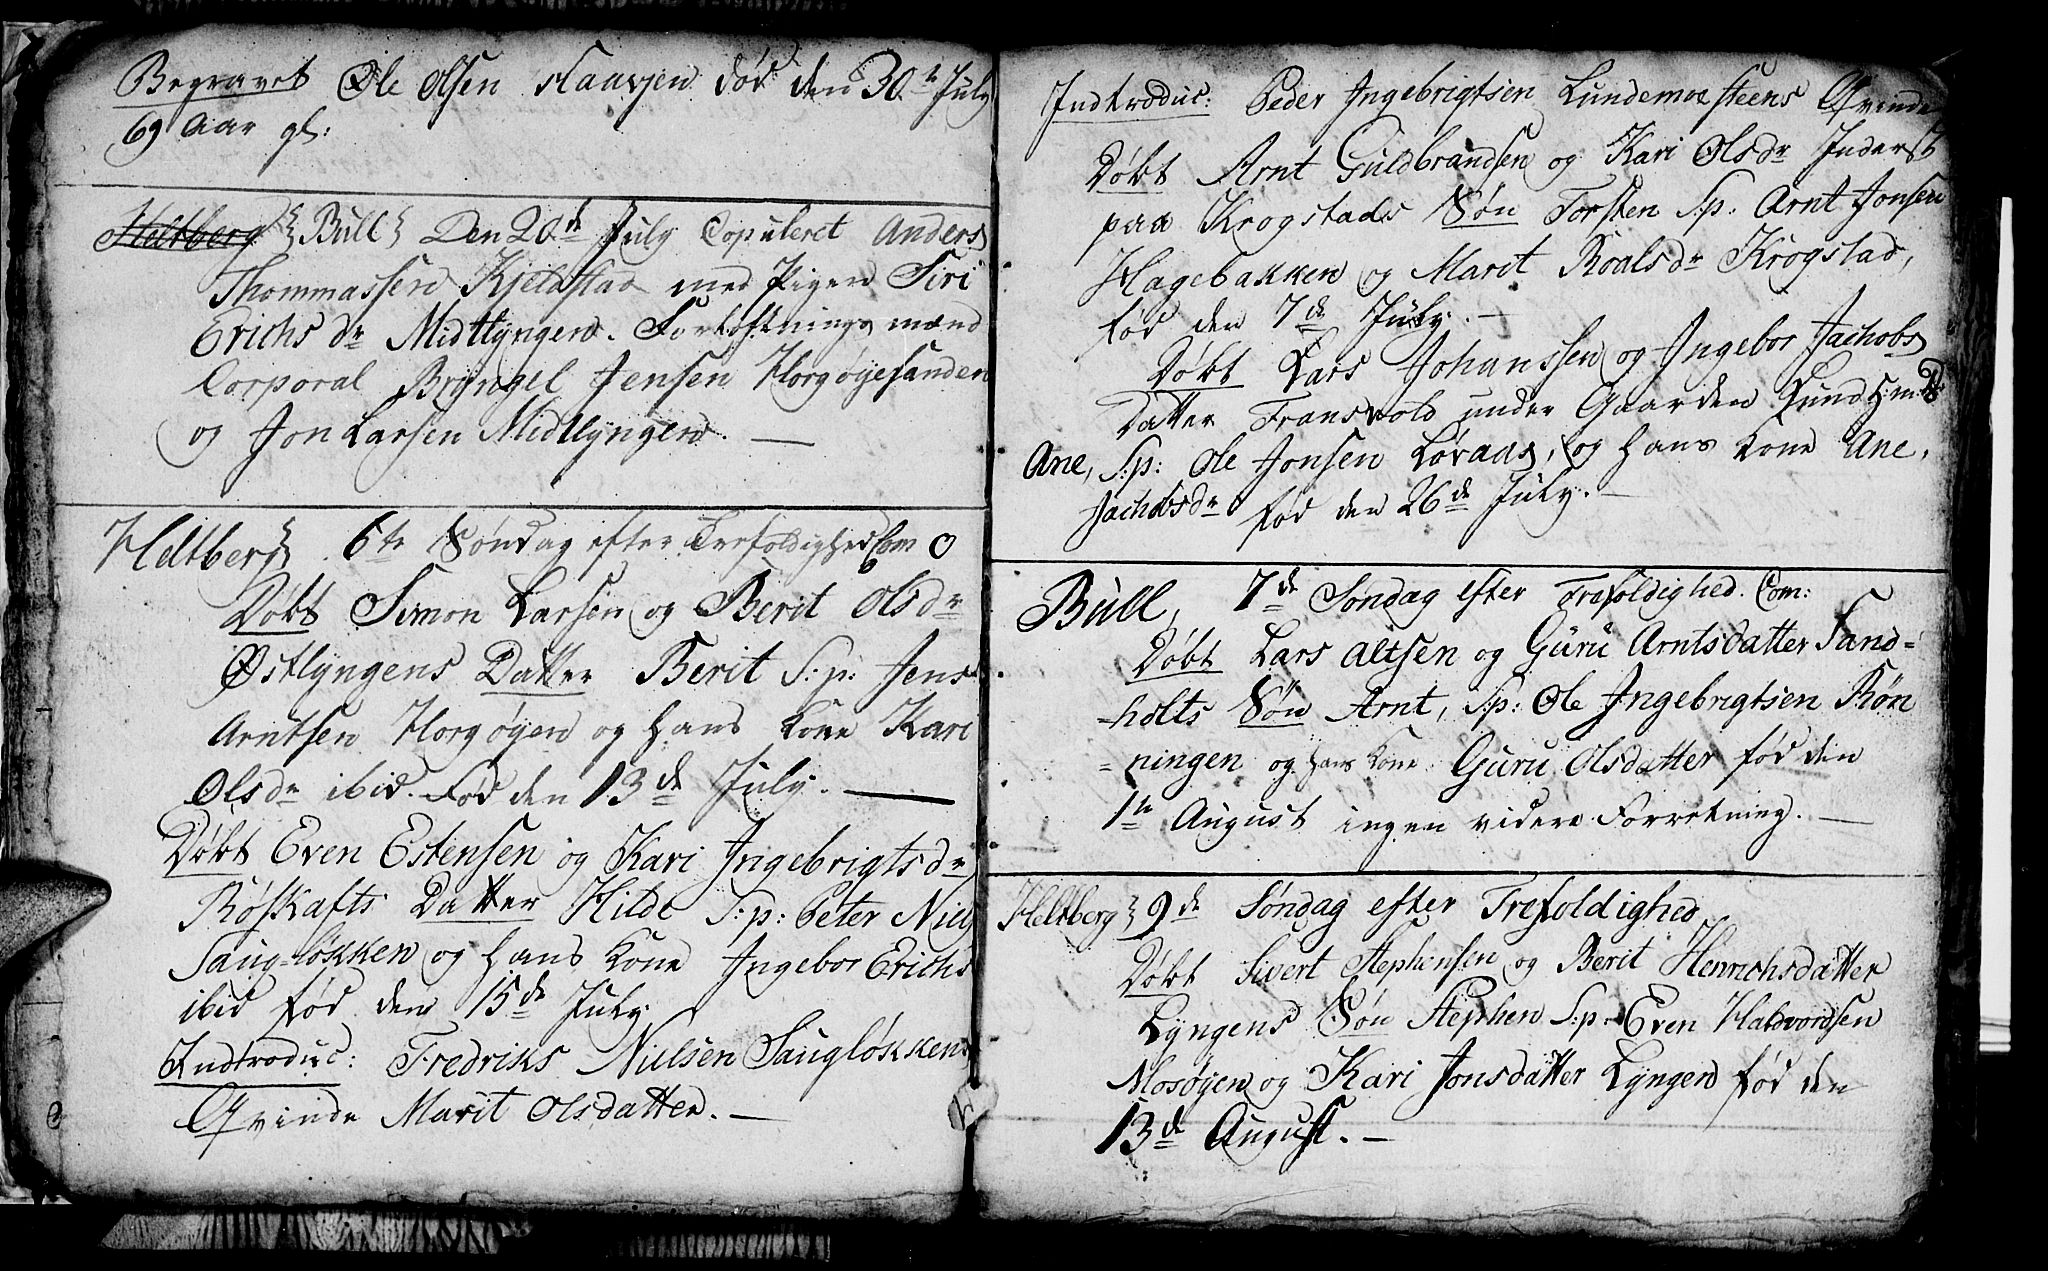 Begravet Ole Olsen Haavjen død den 30te July
69 Aar gl:
Heltberg Bull Den 20de July Copuleret Anders
Thommassen Kjeldstad med Pigen Siri
Erichsdr Midtlyngen. Forlofnings mænd
Corporal Bryngel Jensen Horgøyesanden
og Jon Larsen Midtlyngen. —
Heltberg 6te Søndag efter Trefoldighed Com 0
Døbt Simon Larsen og Berit Olsdr
Østlyngens Datter Berit S:p: Jens
Arntsen Horgøyen og hans Kone Kari
Olsdr ibid. Fød den 13de July. —
Døbt Even Estensen og Kari Ingebrigtsdr
Røskafts Datter Hilde S:p: Peter Niels
Sugløkken og hans Kone Ingebor Erichs
ibid fød den 15de July
Indtroduc: Fredriks Nielsen Saugløkkens
Qvinde Marit Olsdatter. —
Indtroduc: Peder Ingebrigtsen Lundemosteens Qvinde
Døbt Arnt Guldbrandsen og Kari Olsdr Inderst
paa Krogstads Søn Torsten S:p: Arnt Jonsen
Hagebakken og Marit Roalsdr Krogstad,
fød den 7de July. —
Døbt Lars Johanssen og Ingebor Jachobsd
Datter Fransvold under Gaarden Hund
Ane, S:p: Ole Jonsen Løvaas, og hans Kone Ane,
Jachobsdr fød den 26de July. —
Bull, 7de Søndag efter Trefoldighed. Com:
Døbt Lars Altsen og Guru Arntsdatter Sand-
-holts Søn Arnt, S:p: Ole Ingebrigtsen Røn
=ningen og hans Kone Guru Olsdatter fød den
1te August ingen videre Forretning. —
Heltberg 9de Søndag efter Trefoldighed
Døbt Sivert Stephensen og Berit Henrichsdatter
Lyngens Søn Stephen S:p: Even Haldvordsen
Mosøyen og Kari Jonsdatter Lyngen fød den
13de August. —